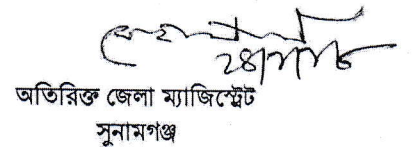 অতিরিক্ত জেলা ম্যাজিস্ট্রেট
সুনামগঞ্জ